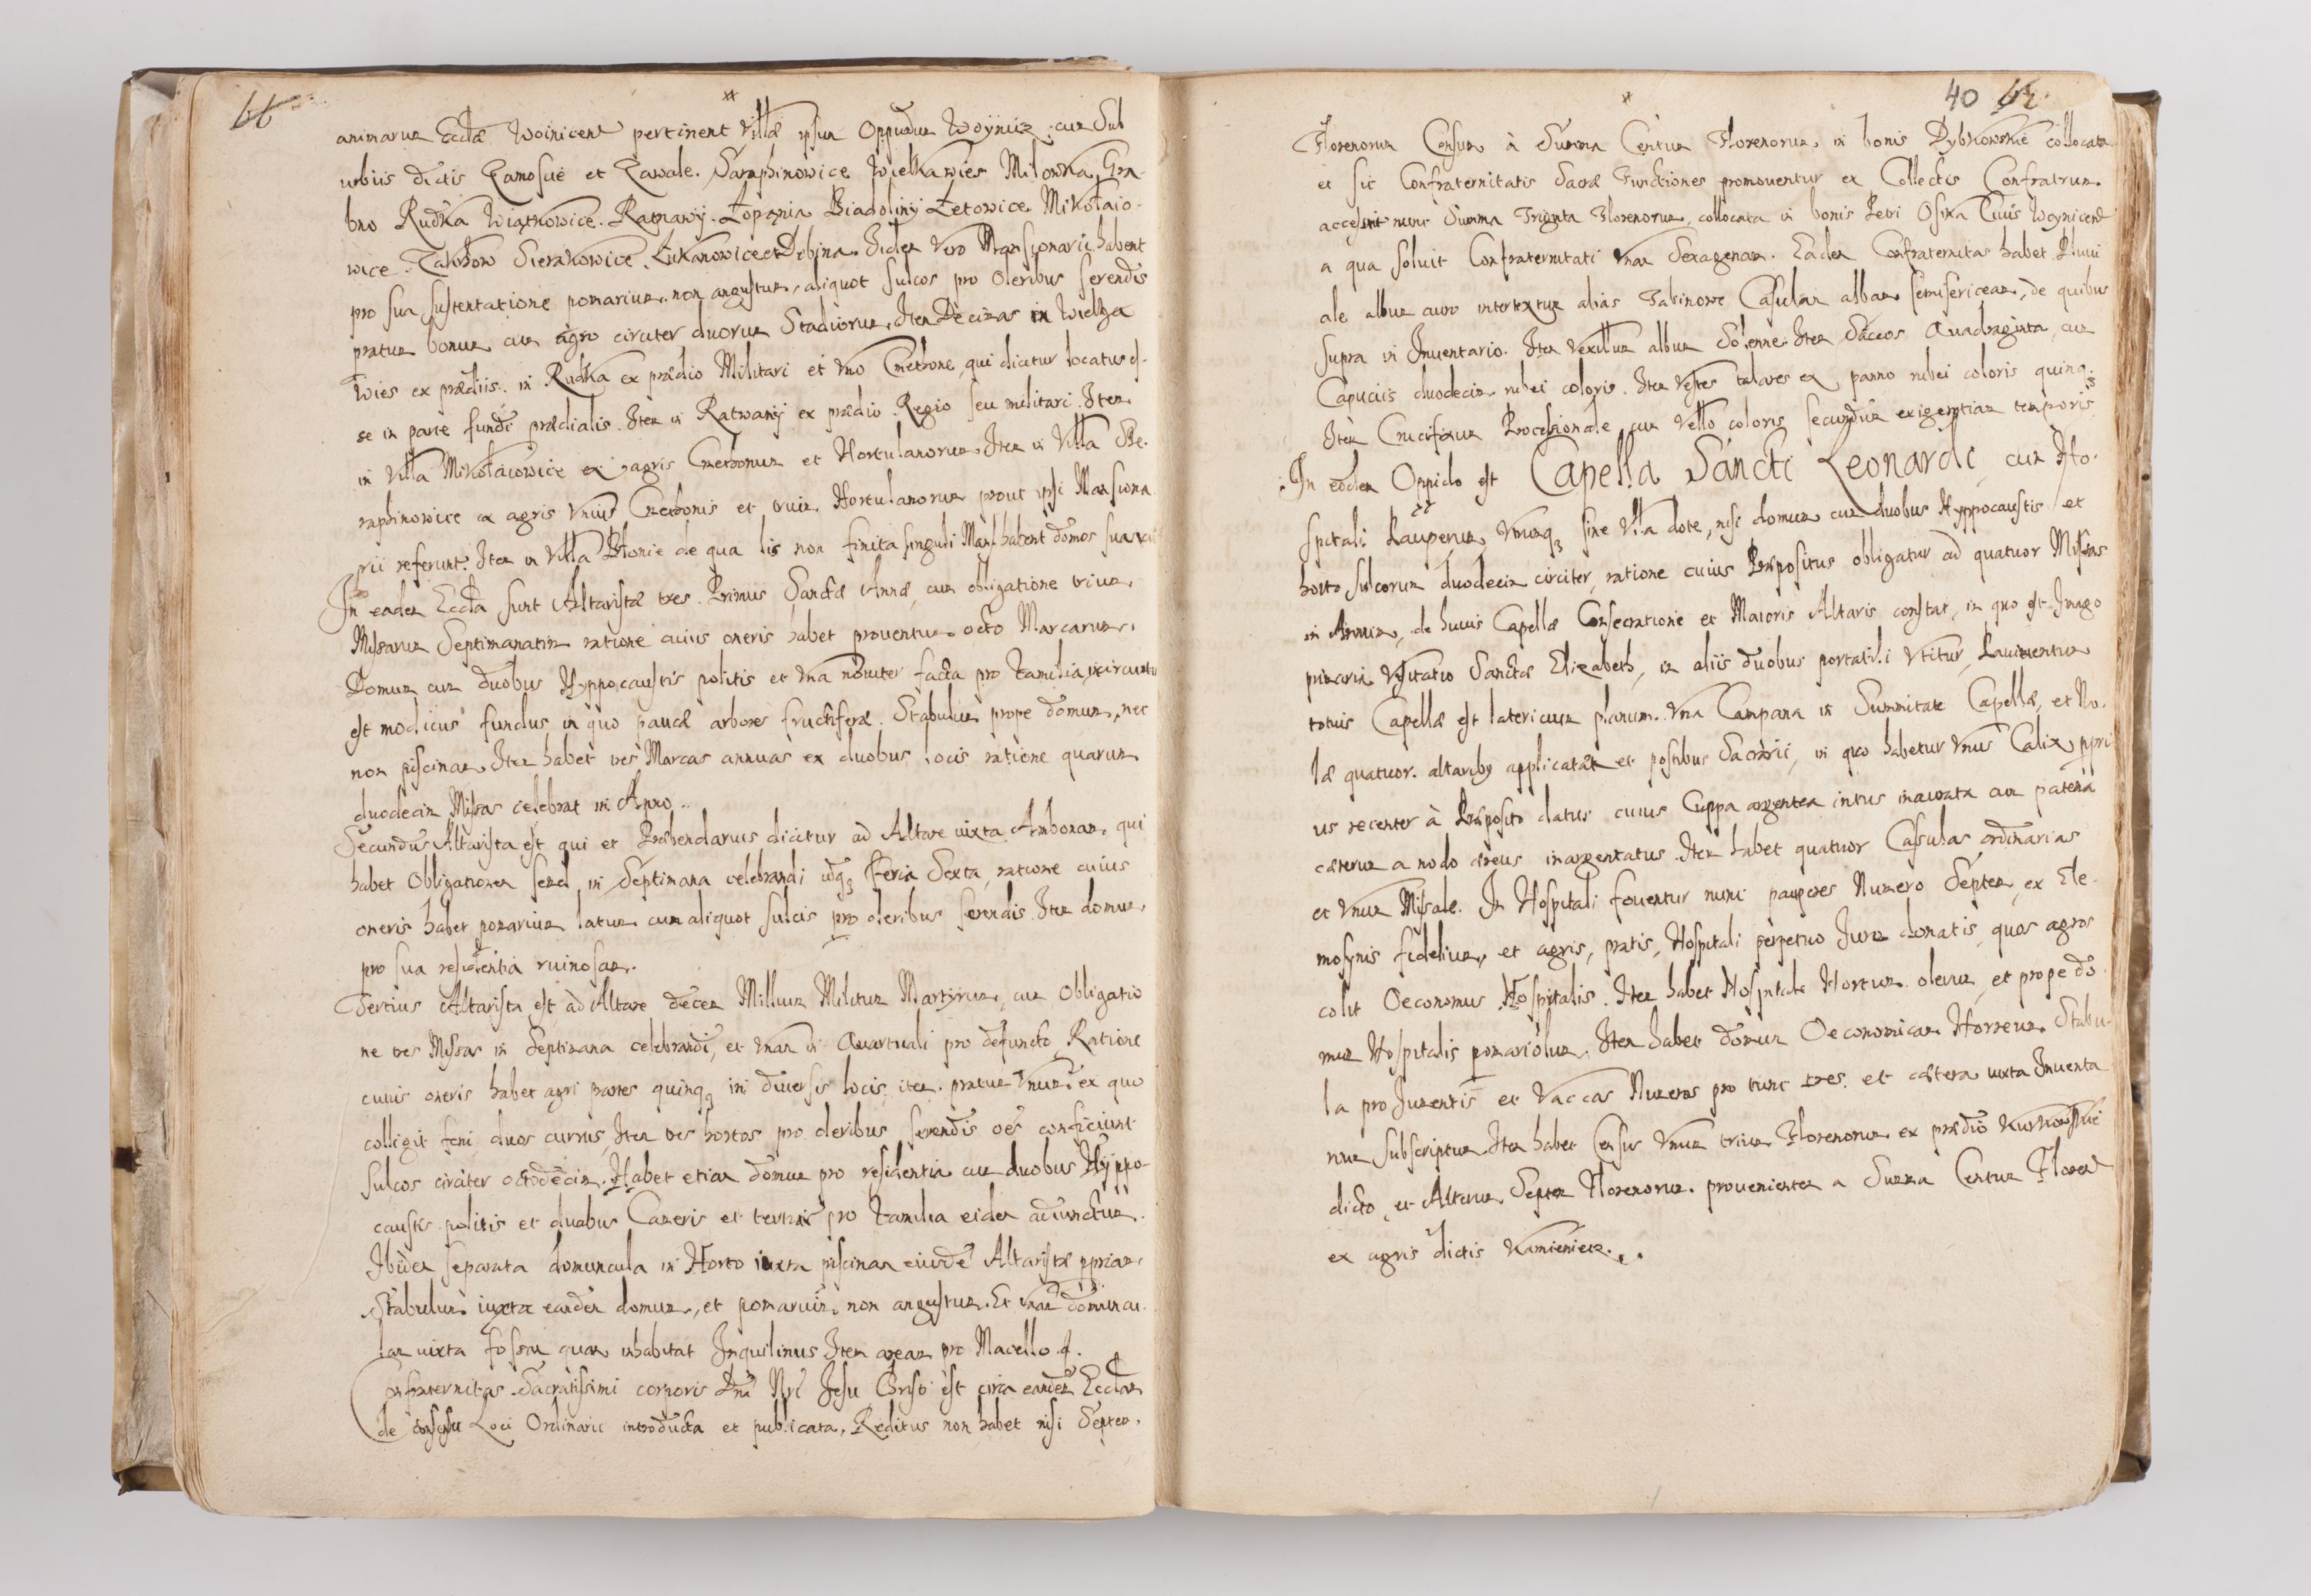 66
animarum Eccłæ Woinicens pertinent Villæ ipsum Oppidum Woÿnicz, cum Sub
urbiis dictis Zamoscie et Zawale. Saraphinowice Wielkawies Milowka, Gra-
bno Rudka Wiątkowice. Ratnawÿ. Łopąnia Biadolinÿ Łetowice. Mikołaio-
wice. Zakrzow Sierakowice. Łukanowice et Dębina. Iidem Vero Mansionarii habent
pro sua sustentatione pomarium. non angustum, aliquot sulcos pro Oleribus serendis
pratum bonum cum agro circiter duorum Stadiorum. Item Decimas in Wielka
Wies ex prædiis. in Rudka ex prædio Militari et Vno Cmethone, qui dicitur locatus es-
se in parte fundi prædialis. Item in Ratnawÿ ex prædio Regio seu militari. Item
in Villa Mikołaiowice ex agris Cmethonum et Hortulanorum. Item in Villa Se-
raphinowice ex agris Vnius Cmethonis et trium Hortulanorum prout ipsi Mansiona
rii referunt. Item in Villa Błonie de qua lis non finita singuli Mans. habent domos suas
In eadem Eccła sunt Altaristæ tres. Primus Sanctæ Annæ, cum obligatione trium
Missarum Septimanatim ratione cuius oneris habet prouentum octo Marcarum.
Domum cum duobus Hyppocaustis politis et Vna nouiter facta pro Familia, in circuitu
est modicus fundus, in quo paucæ arbores fructiferæ. Stabulum prope domum, nec
non piscinam. Item habet tres Marcas annuas ex duobus locis ratione quarum
duodecim Missas celebrat in Anno.
Secundus Altarista est qui et Præbendarius dicitur ad Altare iuxta Ambonam, qui
habet Obligationem semel in Septimana celebrandi idq₃ Feria Sexta, ratione cuius
oneris habet pomarium latum cum aliquot sulcis pro oleribus serendis. Item domum
pro sua residentia ruinosam.
Tertius Altarista est ad Altare decem Millium Militum Martÿrum, cum Obligatio
ne tres Missas in Septimana celebrandi, et Vnam in Quartuali pro defuncto Ratione
cuius oneris habet agri partes quinq₃ in diuersis locis. item. pratum Vnum ex quo
colligit feni duos currus, Item tres hortos pro oleribus serendis oēs conficiunt
sulcos circiter octodecim. Habet etiam domum pro residentia cum duobus Hyppo-
caustis politis et duabus Cameris et tertiis pro Familia eidem adiunctum.
Ibidem separata domuncula in Horto iuxta piscinam eiusdē Altaristæ ppriam.
Stabulum iuxta eandem domum, et pomarium non angustum. Et vnam domuncu-
lam iuxta fossam quam inhabitat Inquilinus Item aream pro Macello.
Confraternitas Sacratissimi corporis Dnī Nrī Jesu Christi est circa eandem Eccłam
de consensu Loci Ordinarii introducta et publicata, Reditus non habet nisi Septem
40 67.
Florenorum Censum à Summa Centum Florenorum in bonis Dybkowskie collocata
et sic Confraternitatis Sacræ Functiones promouentur ex Collectis Confratrum.
accessit nunc Summa Triginta Florenorum, collocata in bonis Petri Osika Ciuis Woynicens
a qua soluit Confraternitati Vnam Sexagenam. Eadem Confraternitas habet Pluui
ale album auro intertextum alias Tabinowe Casulam albam semisericeam, de quibus
supra in Inuentario. Item Vexillum album Solenne. Item Saccos Quadraginta cum
Capuciis duodecim rubei coloris. Item Vestes talares ex panno rubei coloris quinq₃
Item Crucifixum Processionale cum Vello coloris secundum exigentiam temporis
In eodem Oppido est Capella Sancti Leonardi cum Ho-
spitali Pauperum, Vtrumq₃ sine Vlla dote, nisi domum cum duobus Hyppocaustis et
horto sulcorum duodecim circiter, ratione cuius Præpositus obligatur ad quatuor Missas
in Annum, de huius Capellæ Consecratione et Maioris Altaris constat, in quo est Imago
primaria Visitatio Sanctæ Elizabeth, in aliis duobus portatili Vtitur, Pauimentum
totius Capellæ est latericium planum. Vna Campana in Summitate Capellæ, et No-
læ quatuor. altaribus applicatæ et postibus Sacrarii, in quo habetur Vnus Calix, ppri
us recenter à Præposito datus cuius Cuppa argentea intus inaurata cum patena
cæterum a nodo æreus inargentatus. Item habet quatuor Casulas ordinarias
et Vnum Missale. In Hospitali fouentur nunc pauperes Numero Septem, ex Ele-
mosynis fidelium, et agris, pratis, Hospitali perpetuo Jure donatis, quos agros
colit Oeconomus Hospitalis. Item habet Hospitale Hortum olerum, et prope do
mum Hospitalis pomariolum. Item habet domum Oeconomicam Horreum. Stabu-
la pro Jumentis et Vaccas Numero pro tunc tres. et cætera iuxta Inuenta
rium subscriptum. Item habet Censum Vnum trium Florenorum ex prædio Kurkowskie
dicto, et Alterum Septem Florenorum. prouenientem a Summa Centum Floren
ex agris dictis Kamieniecz.